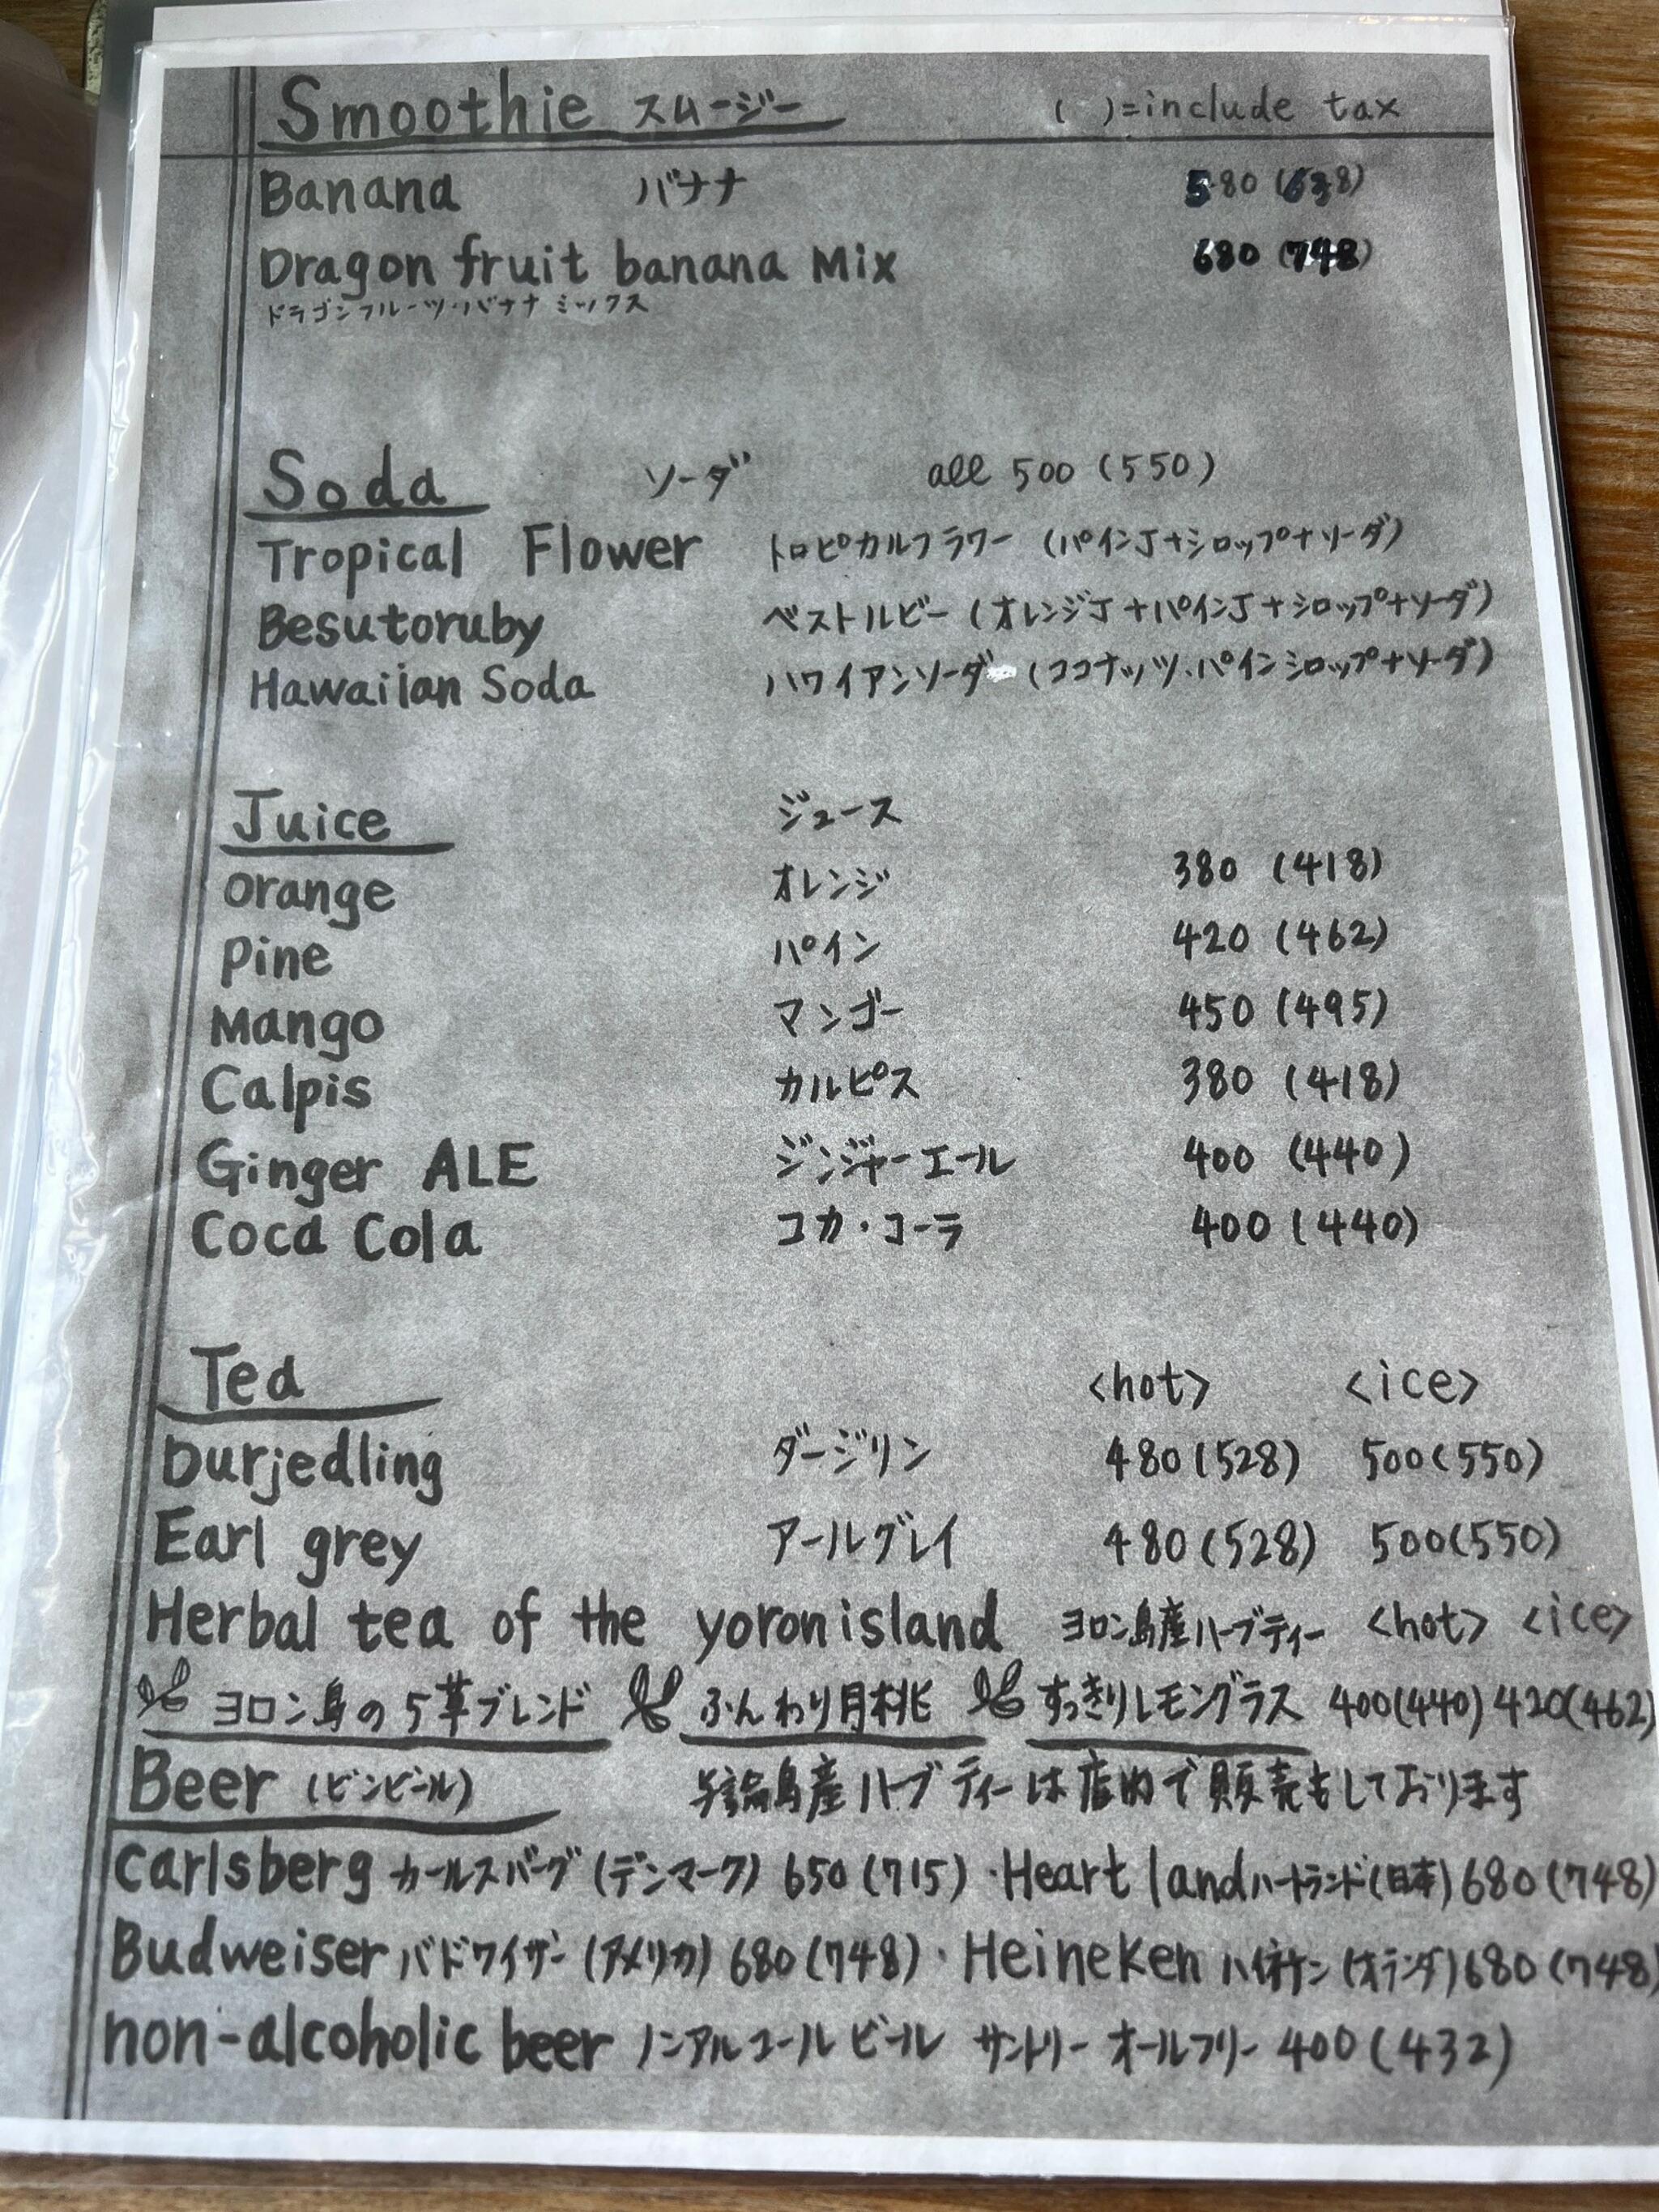 Smoothie スムージー ( )=include tax
Banana バナナ 580 (638)
Dragon fruit banana Mix 680 (748)
ドラゴンフルーツ・バナナ ミックス
Soda ソーダ all 500 (550)
Tropical Flower トロピカルフラワー (パインJ+シロップ+ソーダ)
Besutoruby ベストルビー (オレンジJ+パインJ+シロップ+ソーダ)
Hawaiian Soda ハワイアンソーダ (ココナッツ・パインシロップ+ソーダ)
Juice ジュース
Orange オレンジ 380 (418)
Pine パイン 420 (462)
Mango マンゴー 450 (495)
Calpis カルピス 380 (418)
Ginger ALE ジンジャーエール 400 (440)
Coca Cola コカ・コーラ 400 (440)
Tea <hot> <ice>
Durjedling ダージリン 480(528) 500(550)
Earl grey アールグレイ 480(528) 500(550)
Herbal tea of the yoron island ヨロン島産ハーブティー <hot> <ice>
ヨロン島の5草ブレンド ふんわり月桃 すっきりレモングラス 400(440) 420(462)
Beer (ビンビール) 与論島産ハーブティーは店内で販売もしております
Carlsberg カールスバーグ (デンマーク) 650(715) ・Heart land ハートランド(日本) 680(748)
Budweiser バドワイザー (アメリカ) 680(748) ・Heineken ハイネケン (オランダ) 680(748)
non-alcoholic beer ノンアルコールビール サントリー オールフリー 400(432)